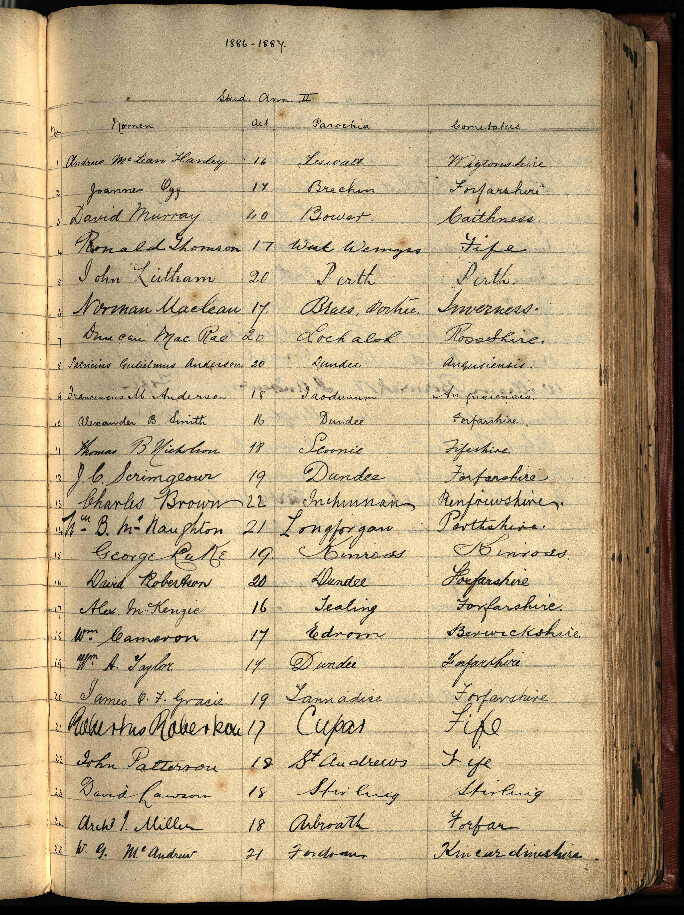 1886-1887.
Stud. Ann. II
No. Nomen Aet Parochia Comitatus
1 Andrew McLean Hanley 16 Wigtonshire
2 Joannes Ogg 17 Brechin Forfarshire
3 David Murray 40 Bower Caithness.
4 Ronald Thomson 17 West Wemyss Fife
5 John Leitham 20 Perth Perth.
6 Norman Maclean 17. Braes, Portree. Inverness.
7 Duncan Mac Rae 20 Lochalsh RossShire.
8 Patricius Gulielmus Anderson 20 Dundee Angusiensis.
9 Franciscus M. Anderson 18 Taodunum Angusiensis.
10 Alexander B Smith 16 Dundee Forfarshire.
11 Thomas B Nicholson 18 Scoonie Fifeshire.
12 J. C. Scrimgeour 19 Dundee Forfarshire
13 Charles Brown 22 Inchinnan Renfrewshire.
14 Wm B. McNaughton 21 Longforgan Perthshire.
15 George 19 Kinross Kinross
16 David Robertson 20 Dundee Forfarshire
17 Alex. McKenzie 16 Tealing Forfarshire.
18 Wm. Cameron 17 Edrom Berwickshire
19 Wm A. Taylor 17 Dundee Forfarshire
20 James C. F. Gracie 19 Tannadice Forfarshire
21 Robertus Robertson 17 Cupar Fife
22 John Patterson 18 St Andrews Fife
23 David Lawson 18 Stirling Stirling
24 Archd J. Miller 18 Arbroath Forfar
25 W. G. McAndrew 21 Fordoun Kincardineshire